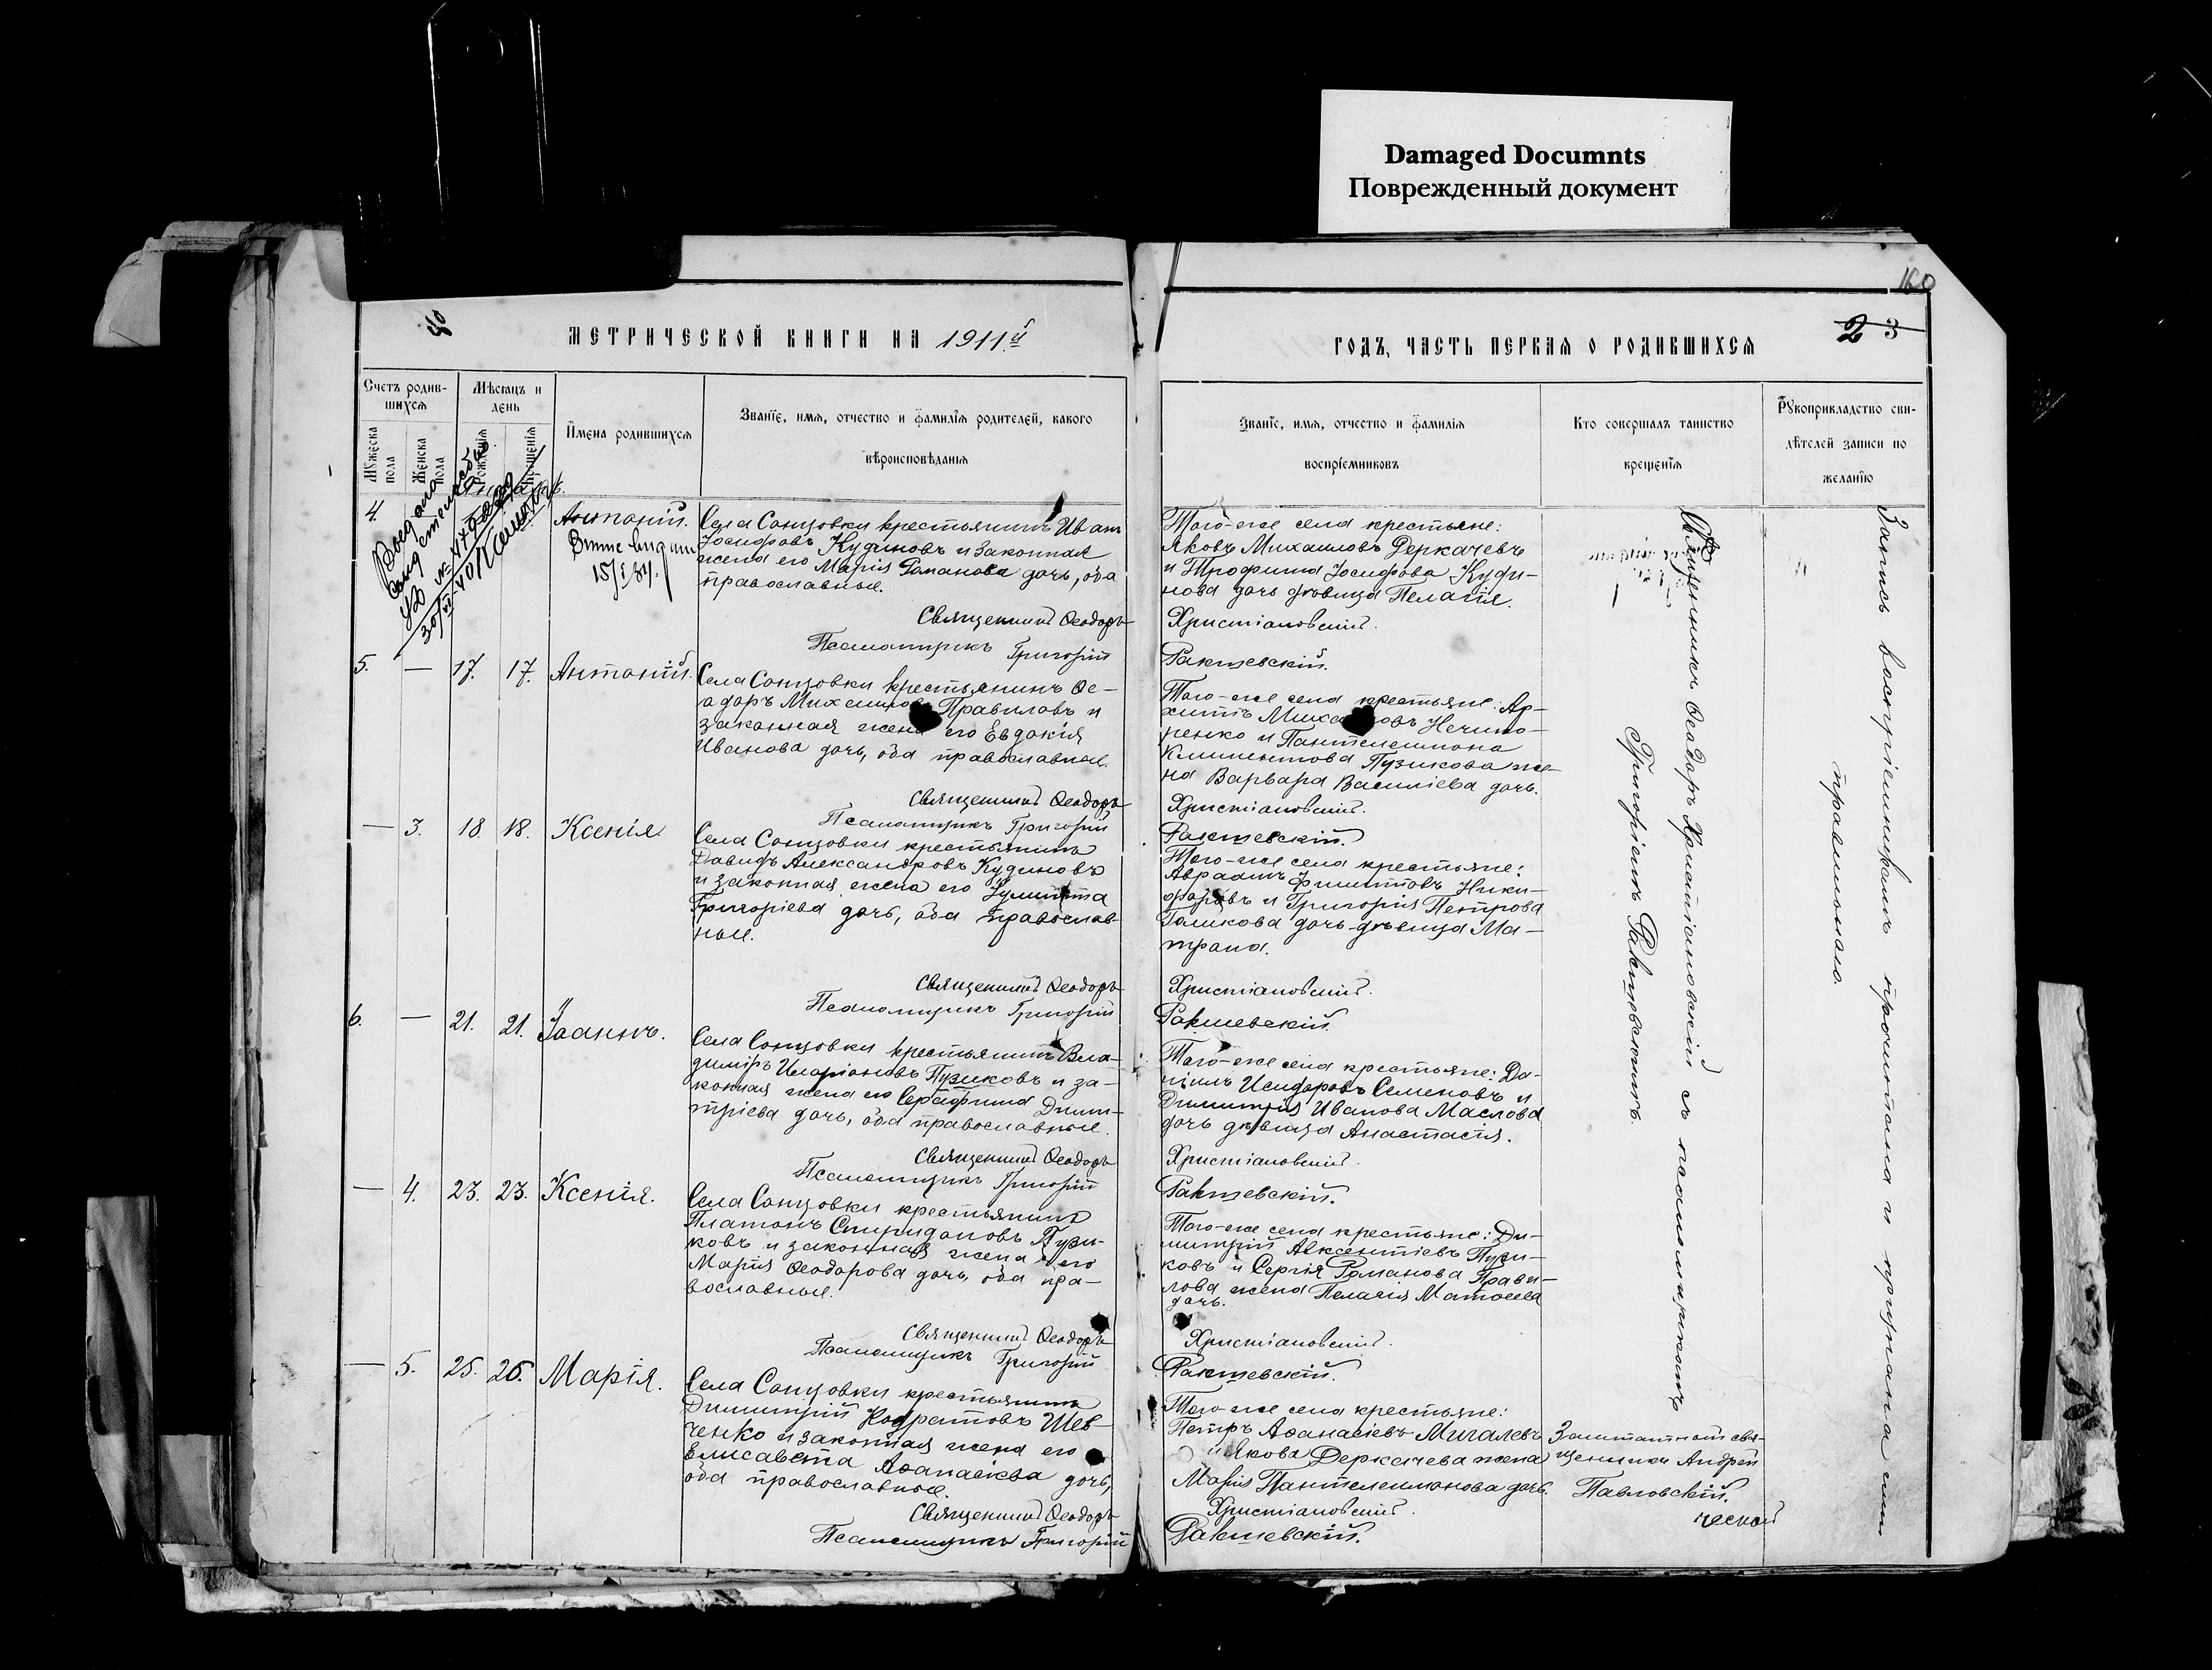 Damaged Documnts
Поврежденный документ
160
МЕТРИЧЕСКОЙ КНИГИ НА 1911й
ГОДЪ, ЧАСТЬ ПЕРВАЯ О РОДИВШИХСЯ
2 3
Счетъ родив-
шихся
Мужеска
пола
Женска
пола
Мѣсяцъ и
день
Рожденія
Крещенія
Имена родившихся
Званіе, имя, отчество и фамилія родителей, какого
вѣроисповѣданія
Званіе, имя, отчество и фамилія
воспріемниковъ
Кто совершалъ таинство
крещенія
Рукоприкладство сви-
дѣтелей записи по
желанію
4.
Антоній.
15/I 34.
Села Сонцовки крестьянинъ Иванъ
Іосифовъ Кудиновъ и законная
жена его Марія Романова дочь, оба
православные.
Священникъ Ѳеодоръ
Псаломщикъ Григорій
Того-же села крестьяне:
Яковъ Михаиловъ Деркачевъ
и Трофима Іосифова Куди-
нова дочь дѣвица Пелагія.
Христіановскій.
Ракшевскій.
5. — 17. 17. Антоній.
Села Сонцовки крестьянинъ Ѳе-
одоръ Михаиловъ Правиловъ и
законная жена его Евдокія
Иванова дочь, оба православные.
Священникъ Ѳеодоръ
Псаломщикъ Григорій
Того-же села крестьяне: Ар-
хипъ Михаиловъ Нечипо-
ренко и Пантелеимона
Климентова Пузикова же-
на Варвара Василіева дочь.
Христіановскій.
Ракшевскій.
— 3. 18. 18. Ксенія.
Села Сонцовки крестьянинъ
Давидъ Александровъ Кудиновъ
и законная жена его Іулитта
Григоріева дочь, оба православ-
ные.
Священникъ Ѳеодоръ
Псаломщикъ Григорій
Того-же села крестьяне:
Авраамъ Филипповъ Ники-
форовъ и Григорія Петрова
Голикова дочь-дѣвица Ма-
трона.
Христіановскій.
Ракшевскій.
6. — 21. 21. Іоаннъ.
Села Сонцовки крестьянинъ Вла-
диміръ Иларіоновъ Пузиковъ и за-
конная жена его Серафима Дими-
тріева дочь, оба православные.
Священникъ Ѳеодоръ
Псаломщикъ Григорій
Того-же села крестьяне: Да-
ніилъ Исидоровъ Семеновъ и
Димитрія Иванова Маслова
дочь дѣвица Анастасія.
Христіановскій.
Ракшевскій.
— 4. 23. 23. Ксенія.
Села Сонцовки крестьянинъ
Платонъ Спиридоновъ Пузи-
ковъ и законная жена его
Марія Ѳеодорова дочь, оба пра-
вославные.
Священникъ Ѳеодоръ
Псаломщикъ Григорій
Того-же села крестьяне: Ди-
митрій Авксентіевъ Пузи-
ковъ и Сергія Романова Прави-
лова жена Пелагія Матѳеева
дочь.
Христіановскій.
Ракшевскій.
— 5. 25. 26. Марія.
Села Сонцовки крестьянинъ
Димитрій Кодратовъ Шев-
ченко и законная жена его
Елисавета Аѳанасіева дочь,
оба православные.
Священникъ Ѳеодоръ
Псаломщикъ Григорій
Того-же села крестьяне:
Петръ Аѳанасіевъ Мигалевъ
и Якова Деркачева жена
Марія Пантелеимонова дочь.
Христіановскій.
Ракшевскій.
Священникъ Ѳеодоръ Христіановскій съ псаломщикомъ
Григоріемъ Ракшевскимъ.
Заштатный свя-
щенникъ Андрей
Павловскій.
Запись воспріемникамъ прочитана и признана ими
правильною.